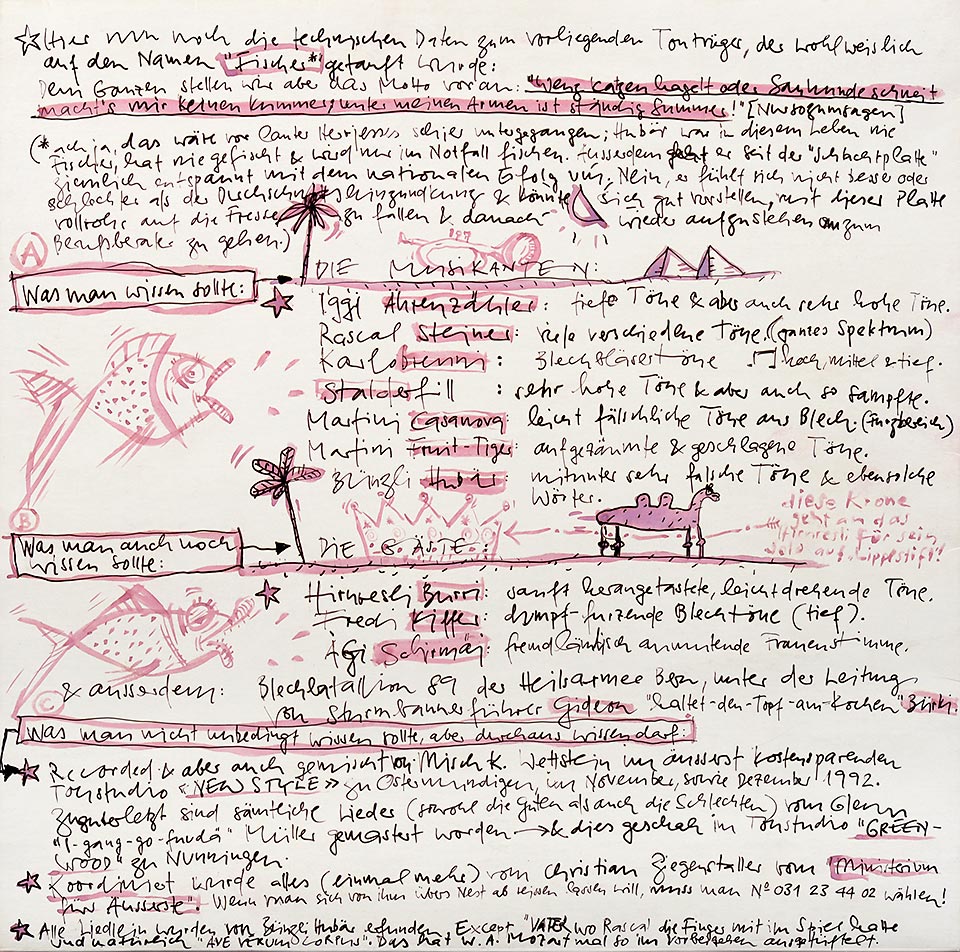 (Hier nun noch die technischen Daten zum vorliegenden Tonträger, der wohlweislich
auf den Namen "Fischer*" getauft wurde:
Dem Ganzen stellen wir aber das Motto voran: "Wenn's Katzen hagelt oder Sauhunde schneit
macht's mir keinen Kummer, unter meinen Armen ist ständig Summer!"
(*ach ja, das wäre vor lauter schier untergegangen; Hubär war in diesem Leben nie
Fischer, hat nie gefischt & wird nur im Notfall fischen. Ausserdem geht er seit der "Schlachtplatte"
ziemlich entspannt mit dem nationalen Erfolg um. Nein, er fühlt sich nicht besser oder
schlechter als der & könnte sich gut vorstellen, mit dieser Platte
vollrohr auf die Fresse zu fallen & danach wieder aufzustehen um zum
Berufsberater zu gehen.)
A
197
DIE MUSIKANTEN:
Was man wissen sollte:
Iggi Ährenzähler: tiefe Töne & aber auch sehr hohe Töne.
Rascal Steiner: viele verschiedene Töne. (ganzes Spektrum)
Karlobrunni: Blechbläsertöne hoch, mittel & tief.
Stalderfill: sehr hohe Töne & aber auch so sampfte.
Martini Casanova: leicht fälschliche Töne aus Blech.
Martini Fruit-Tiger: aufgeräumte & geschlagene Töne.
Bünzli Hubär: mitunter sehr falsche Töne & ebensolche
Wörter.
diese Krone
geht an das
Hirnvesti für sein
Solo auf Lippstift!
B
Was man auch noch
wissen sollte:
DIE GÄSTE:
Hirnvesti Burri: sanft herangetastete, leicht drehende Töne.
Fredi Kiffer: dumpf-furzende Blechtöne (tief).
Ägi Schirmäi: fremdländisch anmutende Frauenstimme.
& ausserdem: Blechbatallion 89 der Heilsarmee Bern, unter der Leitung
von Sturmbannerführer Gideon "haltet-den-Topf-am-Kochen" Bürki.
C
Was man nicht unbedingt wissen sollte, aber durchaus wissen darf:
Recorded & aber auch gemischt von Misch K. Wettstein im äusserst kostensparenden
Tonstudio «NEW STYLE» zu Ostermundigen, im November, sowie Dezember 1992.
Zuguterletzt sind sämtliche Lieder (sowohl die Guten als auch die Schlechten) vom Glenn
"I-gang-go-fnudä" Müller gemastest worden → & dies geschah im Tonstudio "GREEN-
WOOD" zu Nunningen.
Koordiniert wurde alles (einmal mehr) vom Christian Ziegenstaller vom "Ministerium
für Äusserste". Wenn man sich von ihm übers Nest ab reissen lassen will, muss man Nº 031 23 44 02 wählen!
Alle Liedlein wurden von Bünzli Hubär erfunden. Except "VATER" wo Rascal die Finger mit im Spiel hatte
und natürlich "AVE VERUM CORPUS". Das hat W. A. Mozart mal so im Vorbeigehen